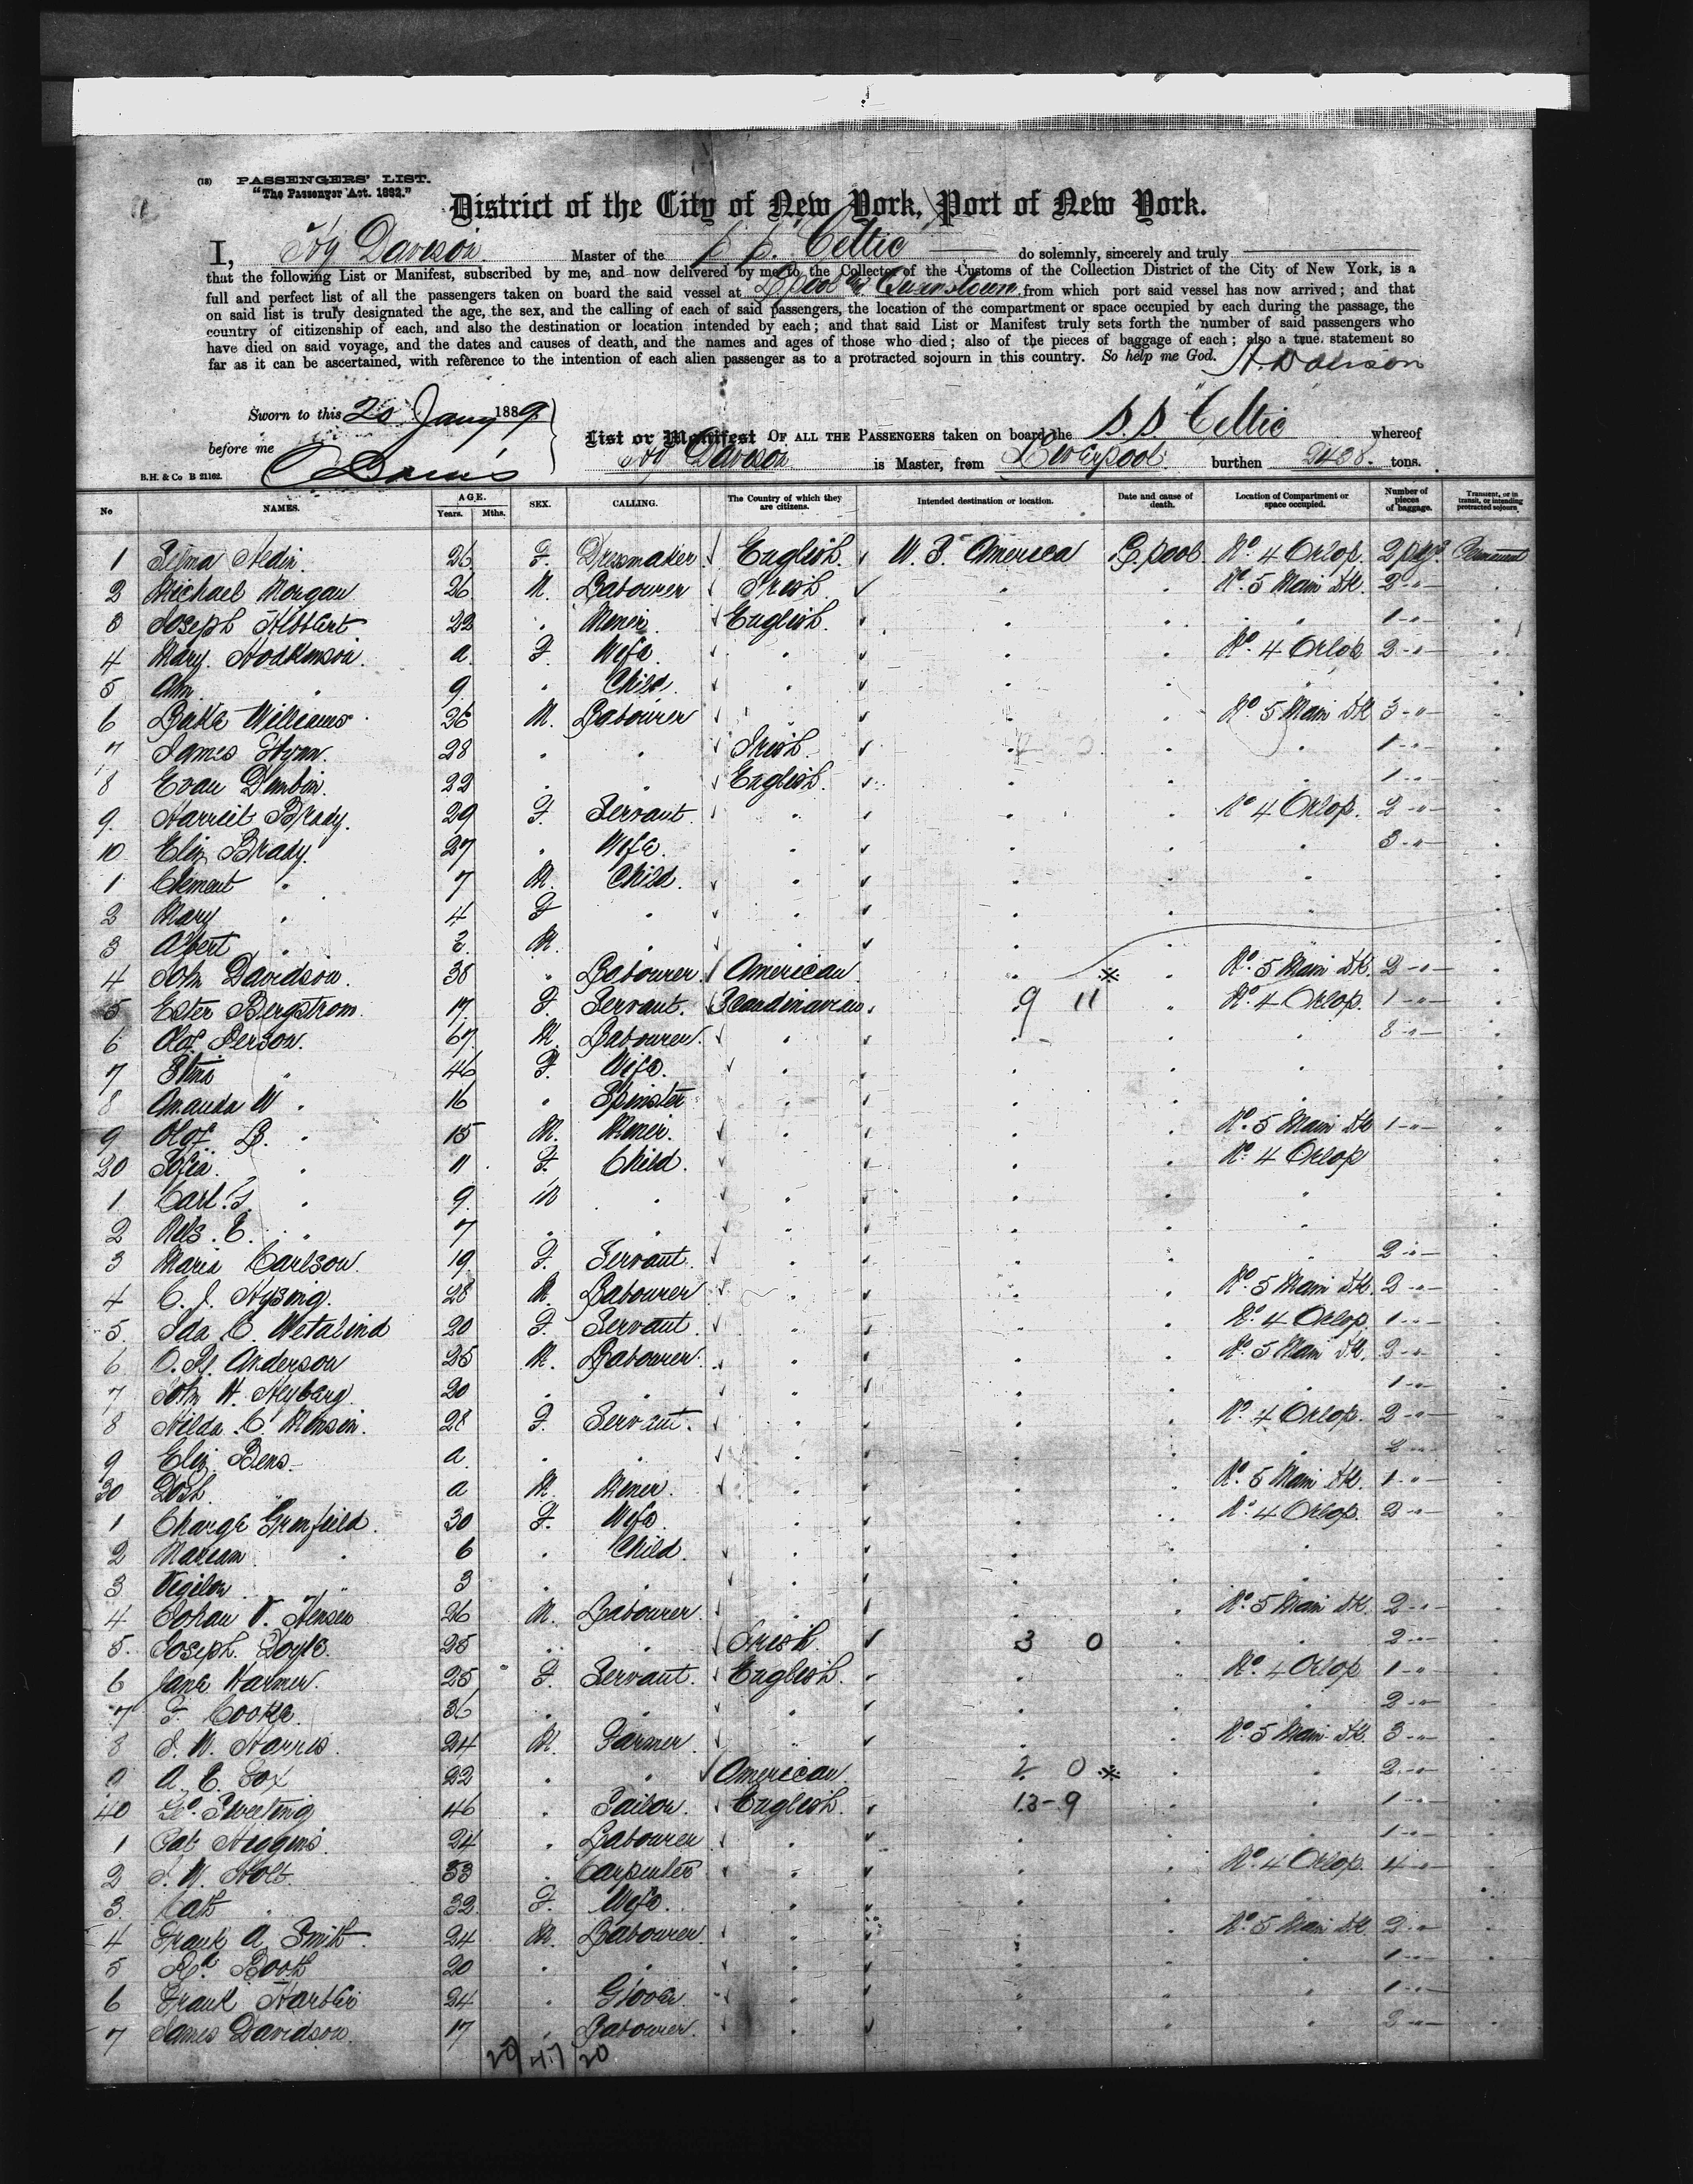 (18) PASSENGERS' LIST.
"The Passenger Act. 1882."
District of the City of New York, Port of New York.
I, Hy Davison Master of the S.S. "Celtic" do solemnly, sincerely and truly
that the following List or Manifest, subscribed by me, and now delivered by me to the Collector of the Customs of the Collection District of the City of New York, is a
full and perfect list of all the passengers taken on board the said vessel at L'pool and Queenstown from which port said vessel has now arrived; and that
on said list is truly designated the age, the sex, and the calling of each of said passengers, the location of the compartment or space occupied by each during the passage, the
country of citizenship of each, and also the destination or location intended by each; and that said List or Manifest truly sets forth the number of said passengers who
have died on said voyage, and the dates and causes of death, and the names and ages of those who died; also of the pieces of baggage of each; also a true statement so
far as it can be ascertained, with reference to the intention of each alien passenger as to a protracted sojourn in this country. So help me God. H. Davison
Sworn to this 20 Jany 1889
before me
List or Manifest OF ALL THE PASSENGERS taken on board the S.S. "Celtic" whereof
Hy Davison is Master, from Liverpool burthen 2438 tons.
B.H. & Co B 21162.
No NAMES. AGE. Years. Mths. SEX. CALLING. The Country of which they are citizens. Intended destination or location. Date and cause of death. Location of Compartment or space occupied. Number of pieces of baggage. Transient, or in transit, or intending protracted sojourn.
1 Selma Hedin 26 F. Dressmaker English. U. S. America L'pool No. 4 Orlop 2 pkgs Permanent
2 Michael Morgan 26 M. Labourer Irish No. 5 Main Dk. 2 "
3 Joseph Hibbert 22 " Miner English. " " " 1 "
4 Mary Hodkinson a F. Wife " " " No. 4 Orlop 2 "
5 Ann " 9 " Child " " "
6 Williams 26 M. Labourer " " No. 5 Main Dk 3 "
7 James Flynn 28 " " Irish " 1 "
8 Evan 22 " " English. " 1 "
9 Harriet Brady 29 F. Servant " " " No 4 Orlop. 2 "
10 Eliz Brady 27 " Wife " " " " 3 "
1 Clement " 7 M. Child " " " "
2 Mary " 4 F " " " " "
3 Albert " 2 M. " " " "
4 John Davidson 38 " Labourer American " * " No. 5 Main Dk. 2 "
5 Ester Bergstrom 17 F. Servant Scandinavian 9 11 " No. 4 Orlop. 1 "
6 Olof Person 67 M. Labourer " " " " 3 "
7 Stina " 46 F. Wife " " "
8 Amanda W " 16 " Spinster " " "
9 Olof B. " 15 M. Miner " " " No. 5 Main Dk 1 "
20 Sofia " 11 F. Child " " " No. 4 Orlop
1 Carl G. " 9 M " " " " "
2 Nels. E. " 7 " " " " "
3 Maria Carlson 19 F. Servant " " " " 2 "
4 C. J. 28 M. Labourer " " " No. 5 Main Dk. 2 "
5 Ida C. 20 F. Servant " " " No. 4 Orlop 1 "
6 Anderson 25 M. Labourer " " " No. 5 Main Dk. 2 "
7 John H. 20 " " " " " " 1 "
8 Hilda C. 28 F. Servant " " " No. 4 Orlop. 2 "
9 Eliz Bens a " " " " " " 2 "
30 " a M. Miner " " " No. 5 Main Dk. 1 "
1 Grenfield 30 F. Wife " " " No. 4 Orlop. 2 "
2 " 6 " Child " " " "
3 " 3 " " " " "
4 Johan V. 26 M. Labourer " " " No. 5 Main Dk. 2 "
5 Joseph Doyle 25 " " Irish 3 0 " " 2 "
6 Jane Harmer 25 F. Servant English. " " No. 4 Orlop 1 "
7 F. Cooke 36 " " " " " 2 "
8 J. W. Harris 24 M. Farmer " " " No. 5 Main Dk. 3 "
9 A. E. 22 " " American 2 0 * " " 2 "
40 Geo. Sweeting 46 " Tailor English. 13-9 " 1 "
1 Pat Higgins 24 " Labourer " " " 1 "
2 J. W. Holt 33 " Carpenter " " " No. 4 Orlop. 4 "
3 Cath " 32 F. Wife " " "
4 Frank A Smith 24 M. Labourer " " " No. 5 Main Dk 2 "
5 Booth 20 " " " " " " 1 "
6 Frank 24 " " " " " 1 "
7 James Davidson 17 " Labourer " " " " 2 "
27 47 20